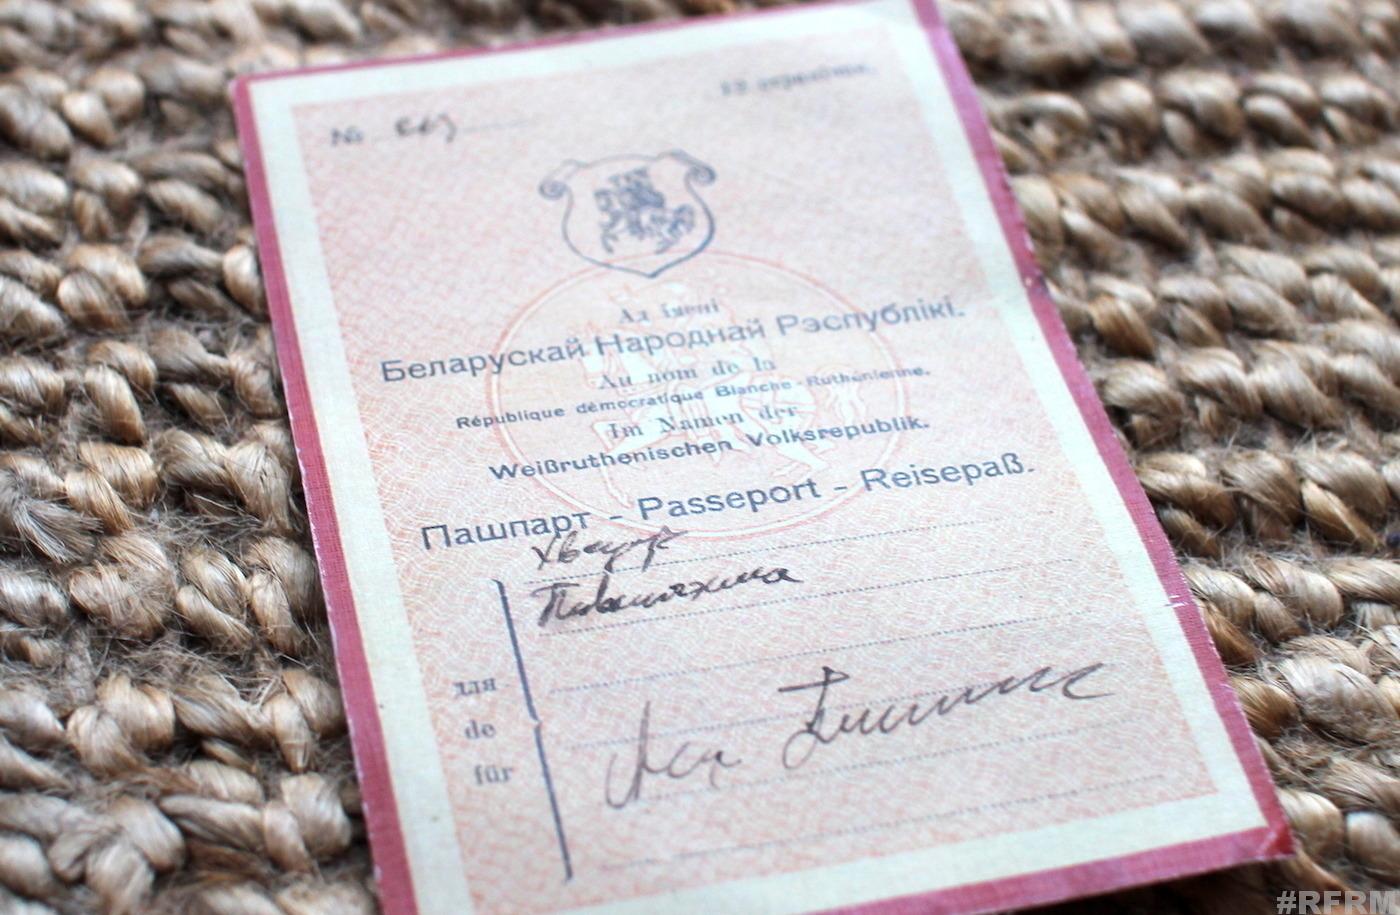 №
Ад Імені
Беларускай Народнай Рэспублікі.
Au nom de la
République démocratique Blanche-Ruthénienne.
Im Namen der
Weißruthenischen Volksrepublik.
Пашпарт - Passeport - Reisepaß.
для
de
für
#RFRM